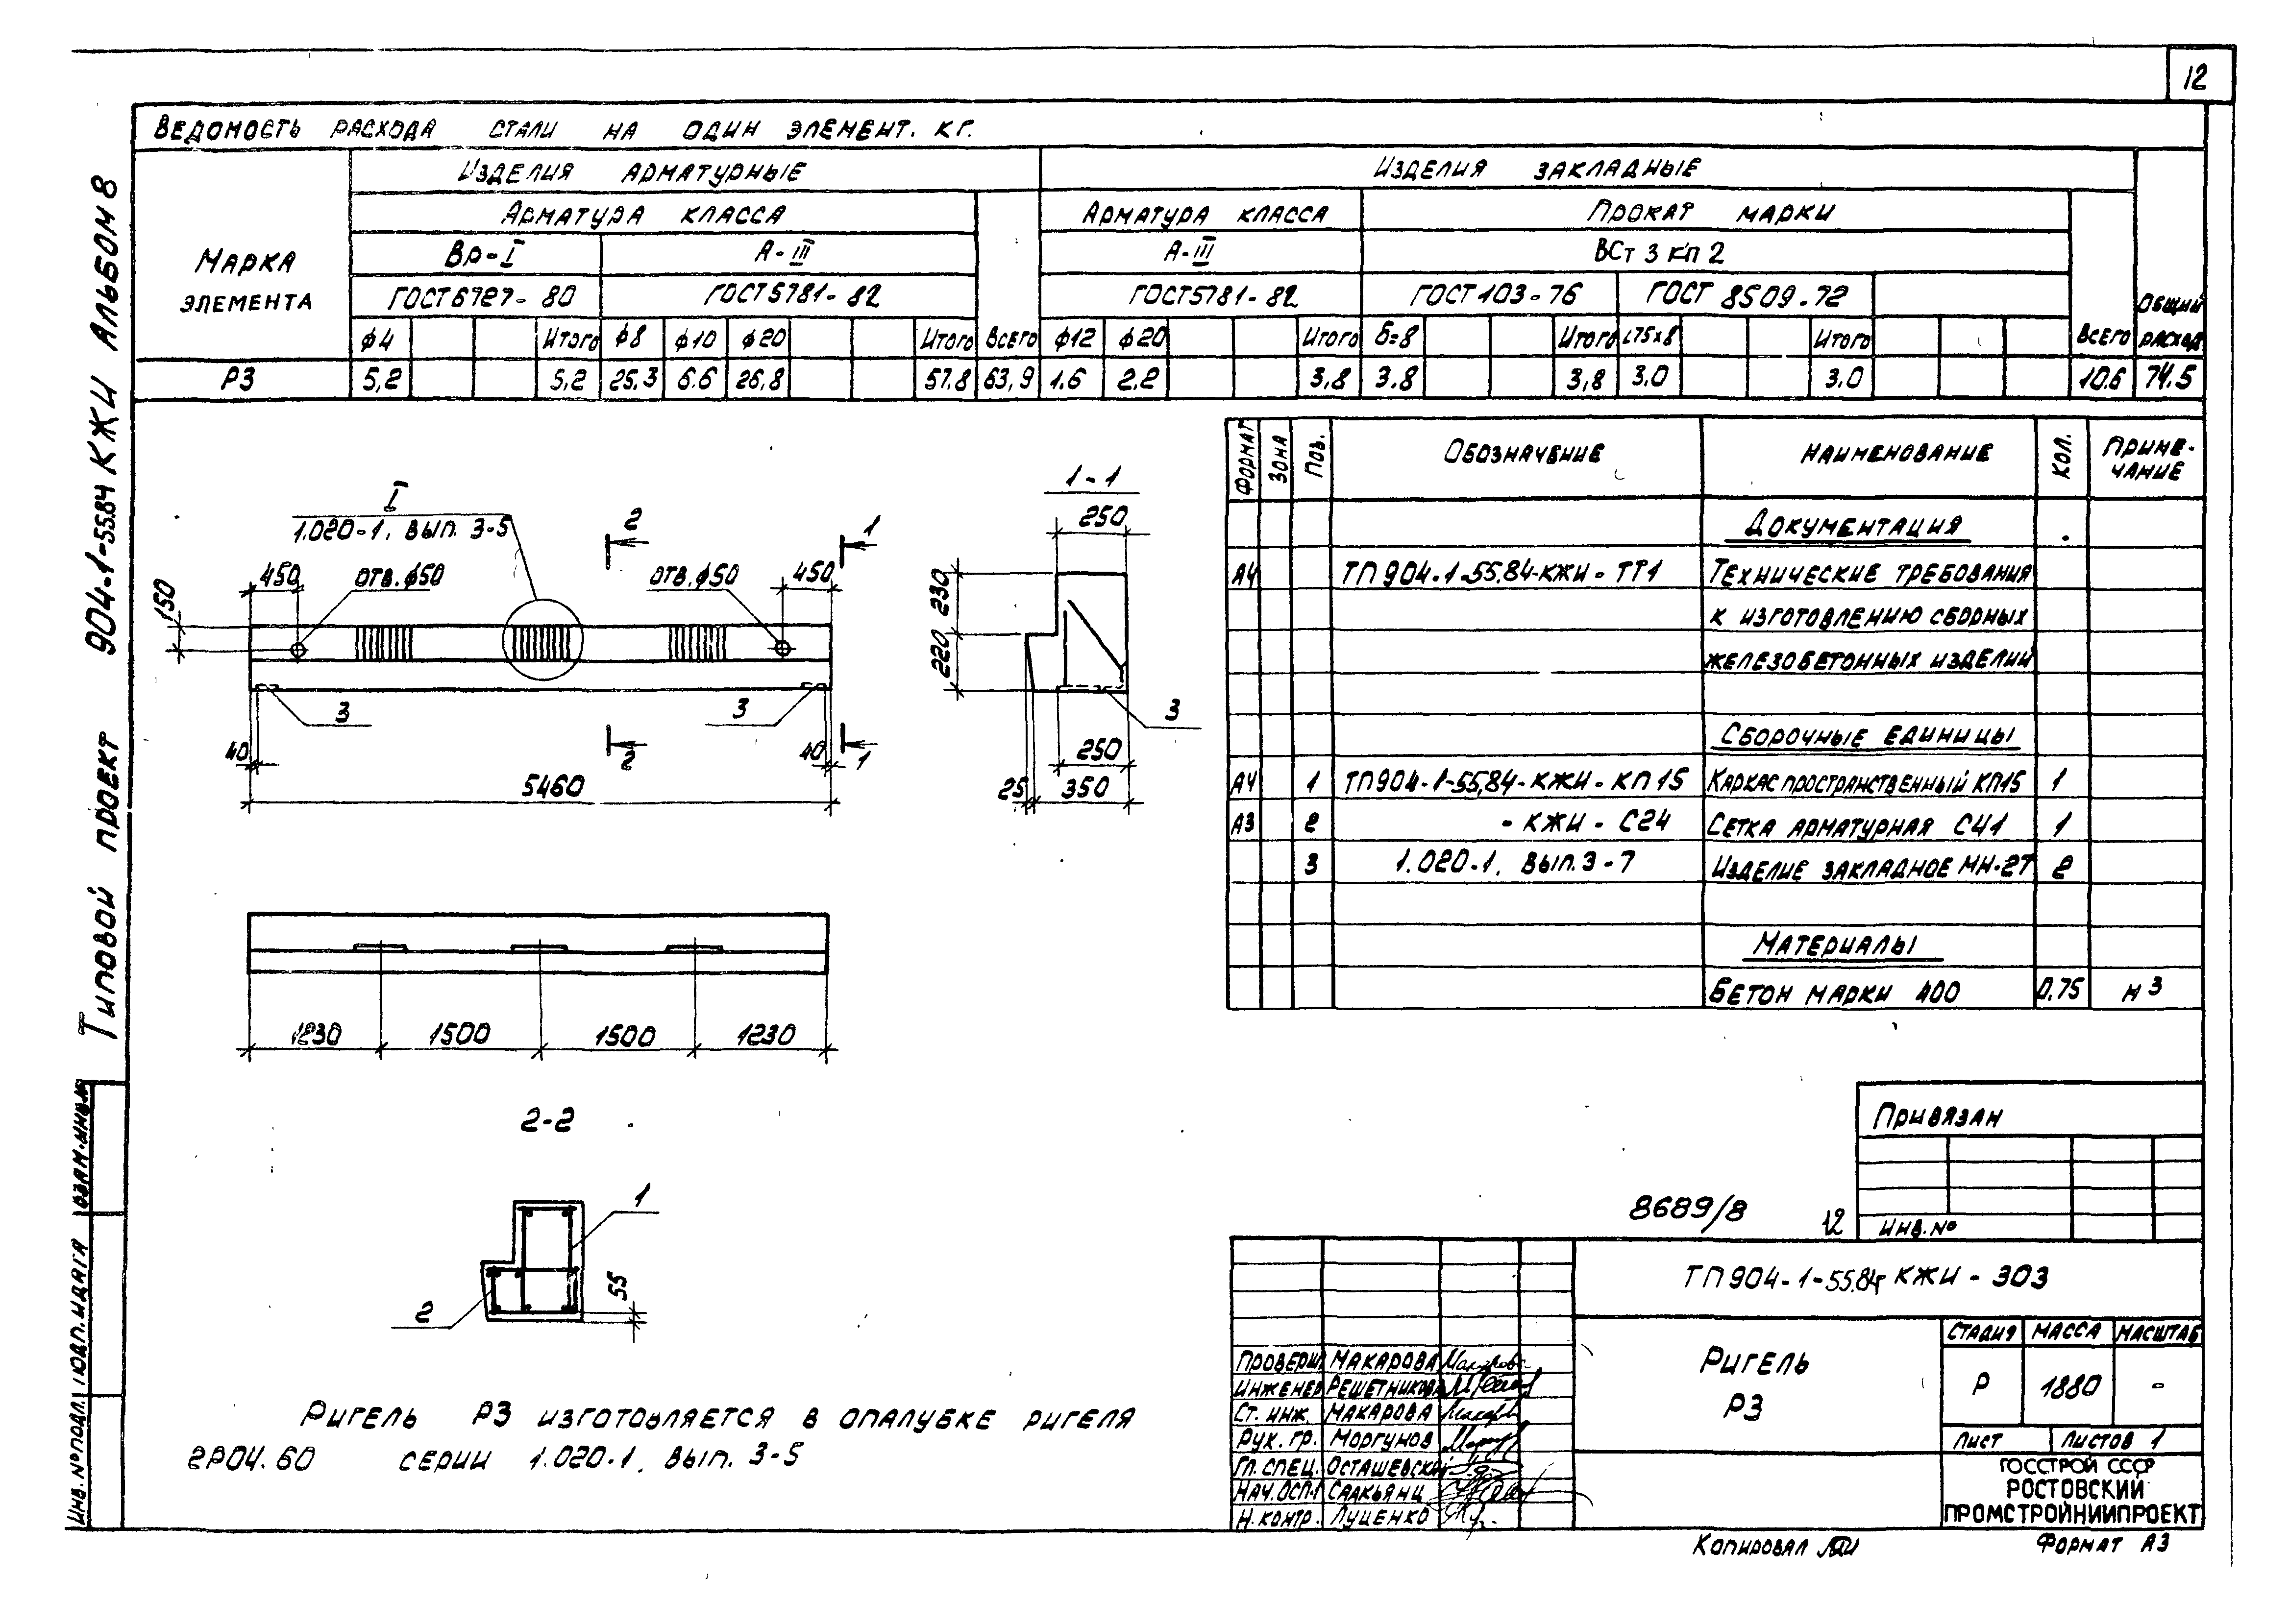 12
ВЕДОМОСТЬ РАСХОДА СТАЛИ НА ОДИН ЭЛЕМЕНТ. КГ.
МАРКА ЭЛЕМЕНТА
ИЗДЕЛИЯ АРМАТУРНЫЕ
ИЗДЕЛИЯ ЗАКЛАДНЫЕ
АРМАТУРА КЛАССА
АРМАТУРА КЛАССА
ПРОКАТ МАРКИ
Вр-I
А-III
А-III
ВСт 3 кп 2
ГОСТ 6727-80
ГОСТ 5781-82
ГОСТ 5781-82
ГОСТ 103-76
ГОСТ 8509-72
ОБЩИЙ РАСХОД
ф4 Итого ф8 ф10 ф20 Итого Всего ф12 ф20 Итого б=8 Итого L75х8 Итого Всего
Р3 5,2 5,2 25,3 6.6 26,8 57.8 63,9 1.6 2.2 3,8 3.8 3,8 3.0 3.0 10.6 74.5
ФОРМАТ ЗОНА ПОЗ. ОБОЗНАЧЕНИЕ НАИМЕНОВАНИЕ КОЛ. ПРИМЕ-
ЧАНИЕ
ДОКУМЕНТАЦИЯ
А4 ТП 904-1-55.84-КЖИ-ТТ1 ТЕХНИЧЕСКИЕ ТРЕБОВАНИЯ
К ИЗГОТОВЛЕНИЮ СБОРНЫХ
ЖЕЛЕЗОБЕТОННЫХ ИЗДЕЛИЙ
СБОРОЧНЫЕ ЕДИНИЦЫ
А4 1 ТП904-1-55,84-КЖИ-КП15 КАРКАС ПРОСТРАНСТВЕННЫЙ КП15 1
А3 2 -КЖИ-С24 СЕТКА АРМАТУРНАЯ С41 1
3 1.020-1, ВЫП.3-7 ИЗДЕЛИЕ ЗАКЛАДНОЕ МН-27 2
МАТЕРИАЛЫ
БЕТОН МАРКИ 400 0.75 м3
I
1.020-1, ВЫП. 3-5
2
1
450
ОТВ.ф50
ОТВ.ф50
450
150
3
3
40
2
40
1
5460
1-1
250
230
220
3
250
25
350
1230
1500
1500
1230
2-2
1
2
55
РИГЕЛЬ Р3 ИЗГОТОВЛЯЕТСЯ В ОПАЛУБКЕ РИГЕЛЯ
2Р04.60 СЕРИИ 1.020-1, ВЫП. 3-5
ТИПОВОЙ ПРОЕКТ 904-1-55.84 КЖИ АЛЬБОМ 8
ИНВ. № ПОДЛ.
ПОДП. И ДАТА
ВЗАМ. ИНВ. №
ПРИВЯЗАН
ИНВ. №
8689/8 12
ТП904-1-55.84 КЖИ-303
РИГЕЛЬ
Р3
СТАДИЯ МАССА МАСШТАБ
Р 1880 -
ЛИСТ ЛИСТОВ 1
ГОССТРОЙ СССР
РОСТОВСКИЙ
ПРОМСТРОЙНИИПРОЕКТ
ПРОВЕРИЛ МАКАРОВА
ИНЖЕНЕР РЕШЕТНИКОВА
СТ. ИНЖ. МАКАРОВА
РУК. ГР. МОРГУНОВ
ГЛ. СПЕЦ. ОСТАШЕВСКИЙ
НАЧ. ОСП-1 СААКЬЯНЦ
Н. КОНТР. ЛУЦЕНКО
КОПИРОВАЛ
ФОРМАТ А3